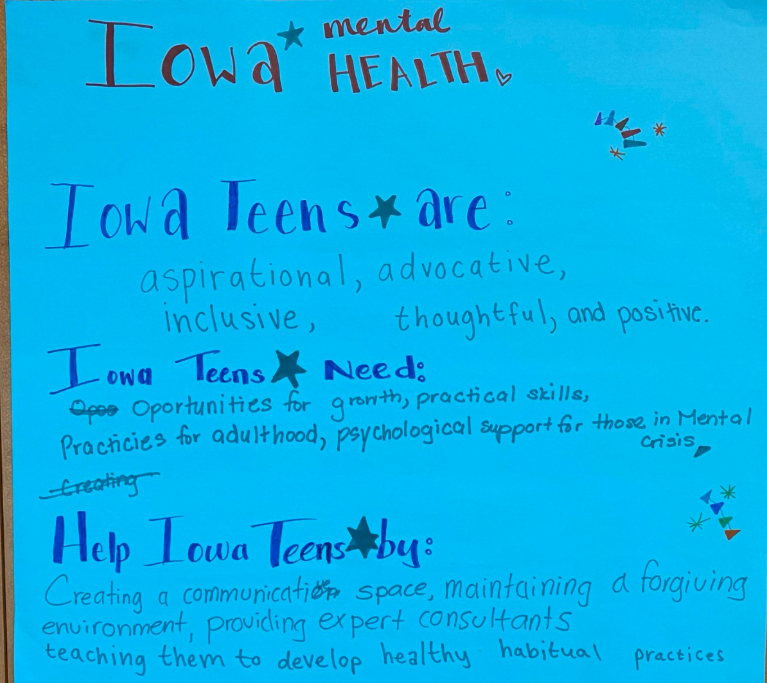 Iowa mental HEALTH
Iowa Teens are:
aspirational, advocative,
inclusive, thoughtful, and positive.
Iowa Teens Need:
Opoo Oportunities for growth, practical skills,
Practicies for adulthood, psychological support for those in Mental
Crisis,
Creating
Help Iowa Teens by:
Creating a communication space, maintaining a forgiving
environment, providing expert consultants
teaching them to develop healthy habitual practices